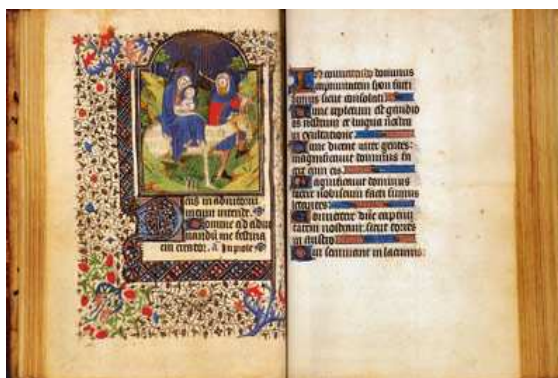 Deus in adiutoriu
meum intende.
Domine ad adiu
uandum me festina
In conuertendo dominus
captiuitatem syon facti
sumus sicut consolati
Tunc repletum est gaudio
os nostrum et lingua nostra
in exultatione
Tunc dicent inter gentes:
magnificauit dominus fa
cere cum eis
Magnificauit dominus
facere nobiscum facti sumus
letantes
Conuertere dne captiui
tatem nostram: sicut torrens
in austro
Qui seminant in lacrimis: